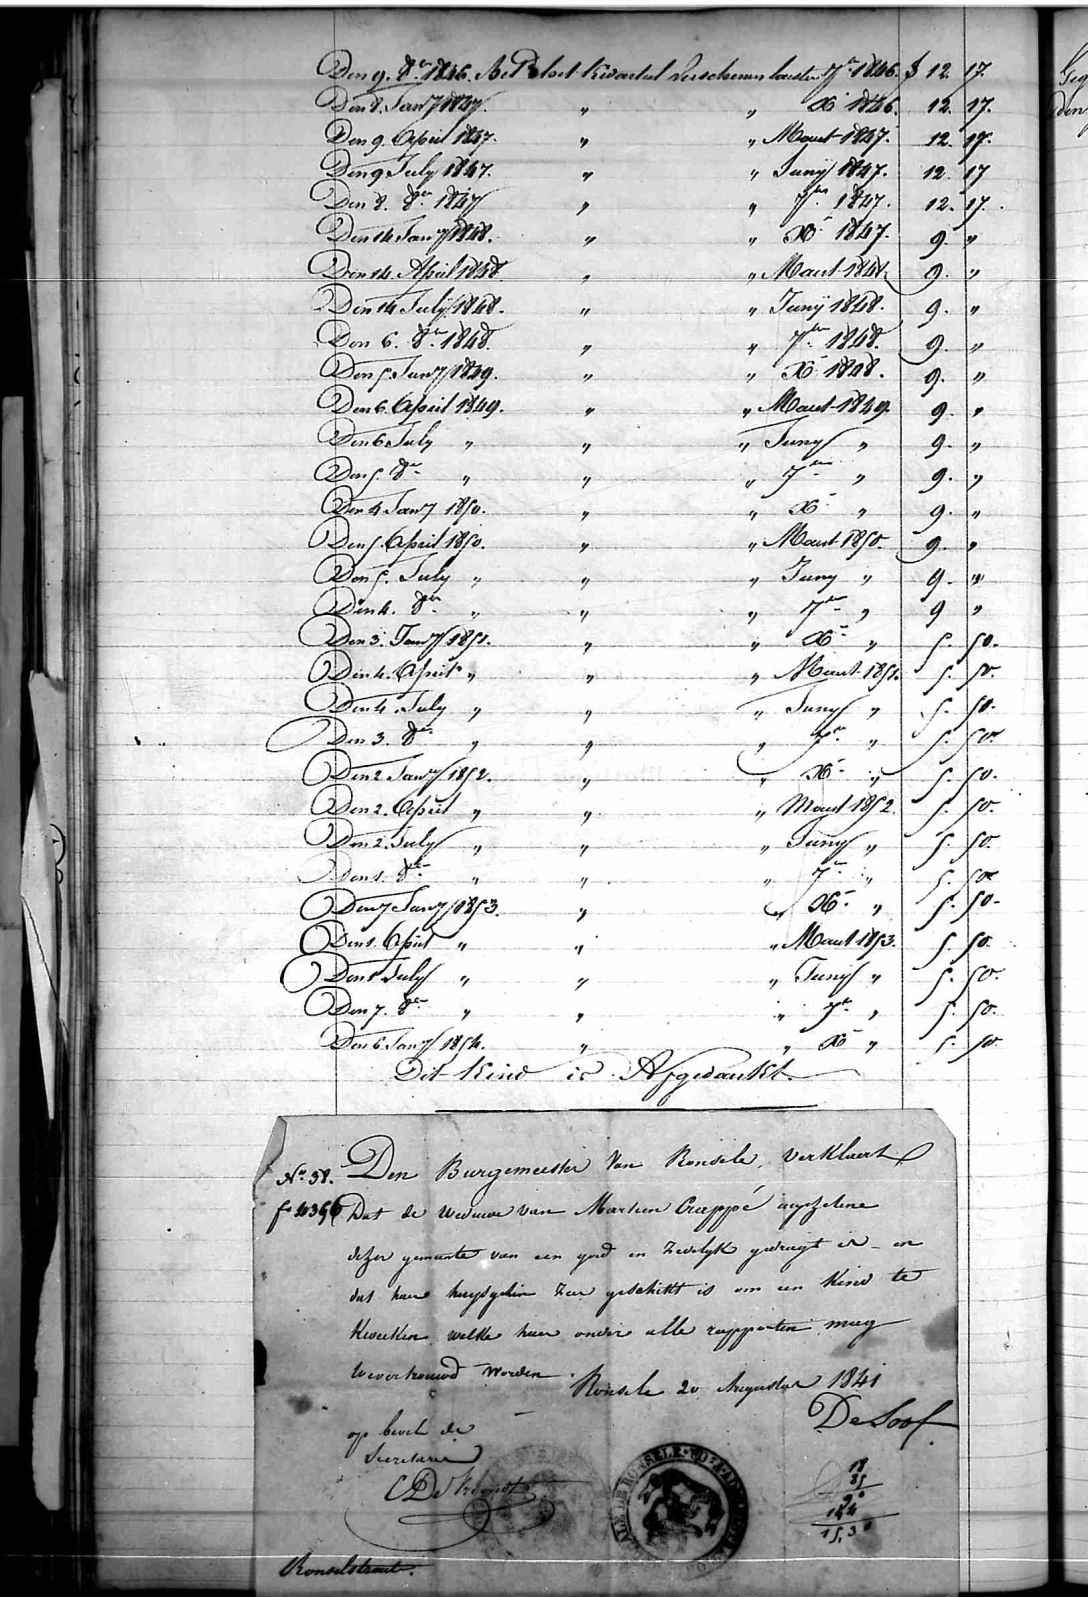 Den 9. 8er 1846. Betaelt Kwartal verschenen lasten 7er 1846. f 12. 17.
Den 8. Jany 1847. " " Xr 1846. 12. 17.
Den 9. April 1847. " " Maert 1847. 12. 17.
Den 9 July 1847. " " Juny 1847. 12. 17
Den 8. 8er 1847 " " 7ber 1847. 12. 17.
Den 14 Jany 1848. " " Xr 1847. 9. "
Den 14. April 1848. " " Maert 1848. 9. "
Den 14 July 1848. " " Junÿ 1848. 9. "
Den 6. 8er 1848. " " 7ber 1848. 9. "
Den 5 Jany 1849. " " Xr 1848. 9. "
Den 6. April 1849. " " Maert 1849. 9. "
Den 6 July " " " Juny " 9. "
Den 5. 8er " " " 7ber " 9. "
Den 4 Jany 1850. " " Xr " 9. "
Den 5. April 1850. " " Maert 1850. 9. "
Den 5. July " " " Juny " 9. "
Den 4. 8er " " " 7ber " 9 "
Den 3. Jany 1851. " " Xr " 5. 50.
Den 4. April " " " Maert 1851. 5. 50.
Den 4. July " " " Juny " 5. 50.
Den 3. 8er " " " 7er " 5. 50.
Den 2 Jany 1852. " " Xr " 5. 50.
Den 2. April " " " Maert 1852. 5. 50.
Den 2. July " " " Juny " 5. 50.
Den 1. 8er " " " 7er " 5. 50
Den 7 Jany 1853. " " Xr " 5. 50.
Den 1. April " " " Maert 1853. 5. 50.
Den 1 July " " " Juny " 5. 50.
Den 7. 8er " " " 7er " 5. 50.
Den 6 Jany 1854. " " Xr " 5. 50
Dit Kind is Afgedankt.
No. 58. Den Burgemeester Van Ronsele, verklaert
fo 4396 Dat de weduwe van Martien Crappé ingezetene
dezer gemeente van een goed en zedelyk gedragt is en
dat haer huysgezin zeer geschikt is om een Kind te
Kweeken welke haer onder alle rapporten mag
toevertrouwd worden.
Ronsele 20 Augustus 1841
De Loof
op bevel de
Secretaris
18
35
90
144
15,30
Ronselstraet.